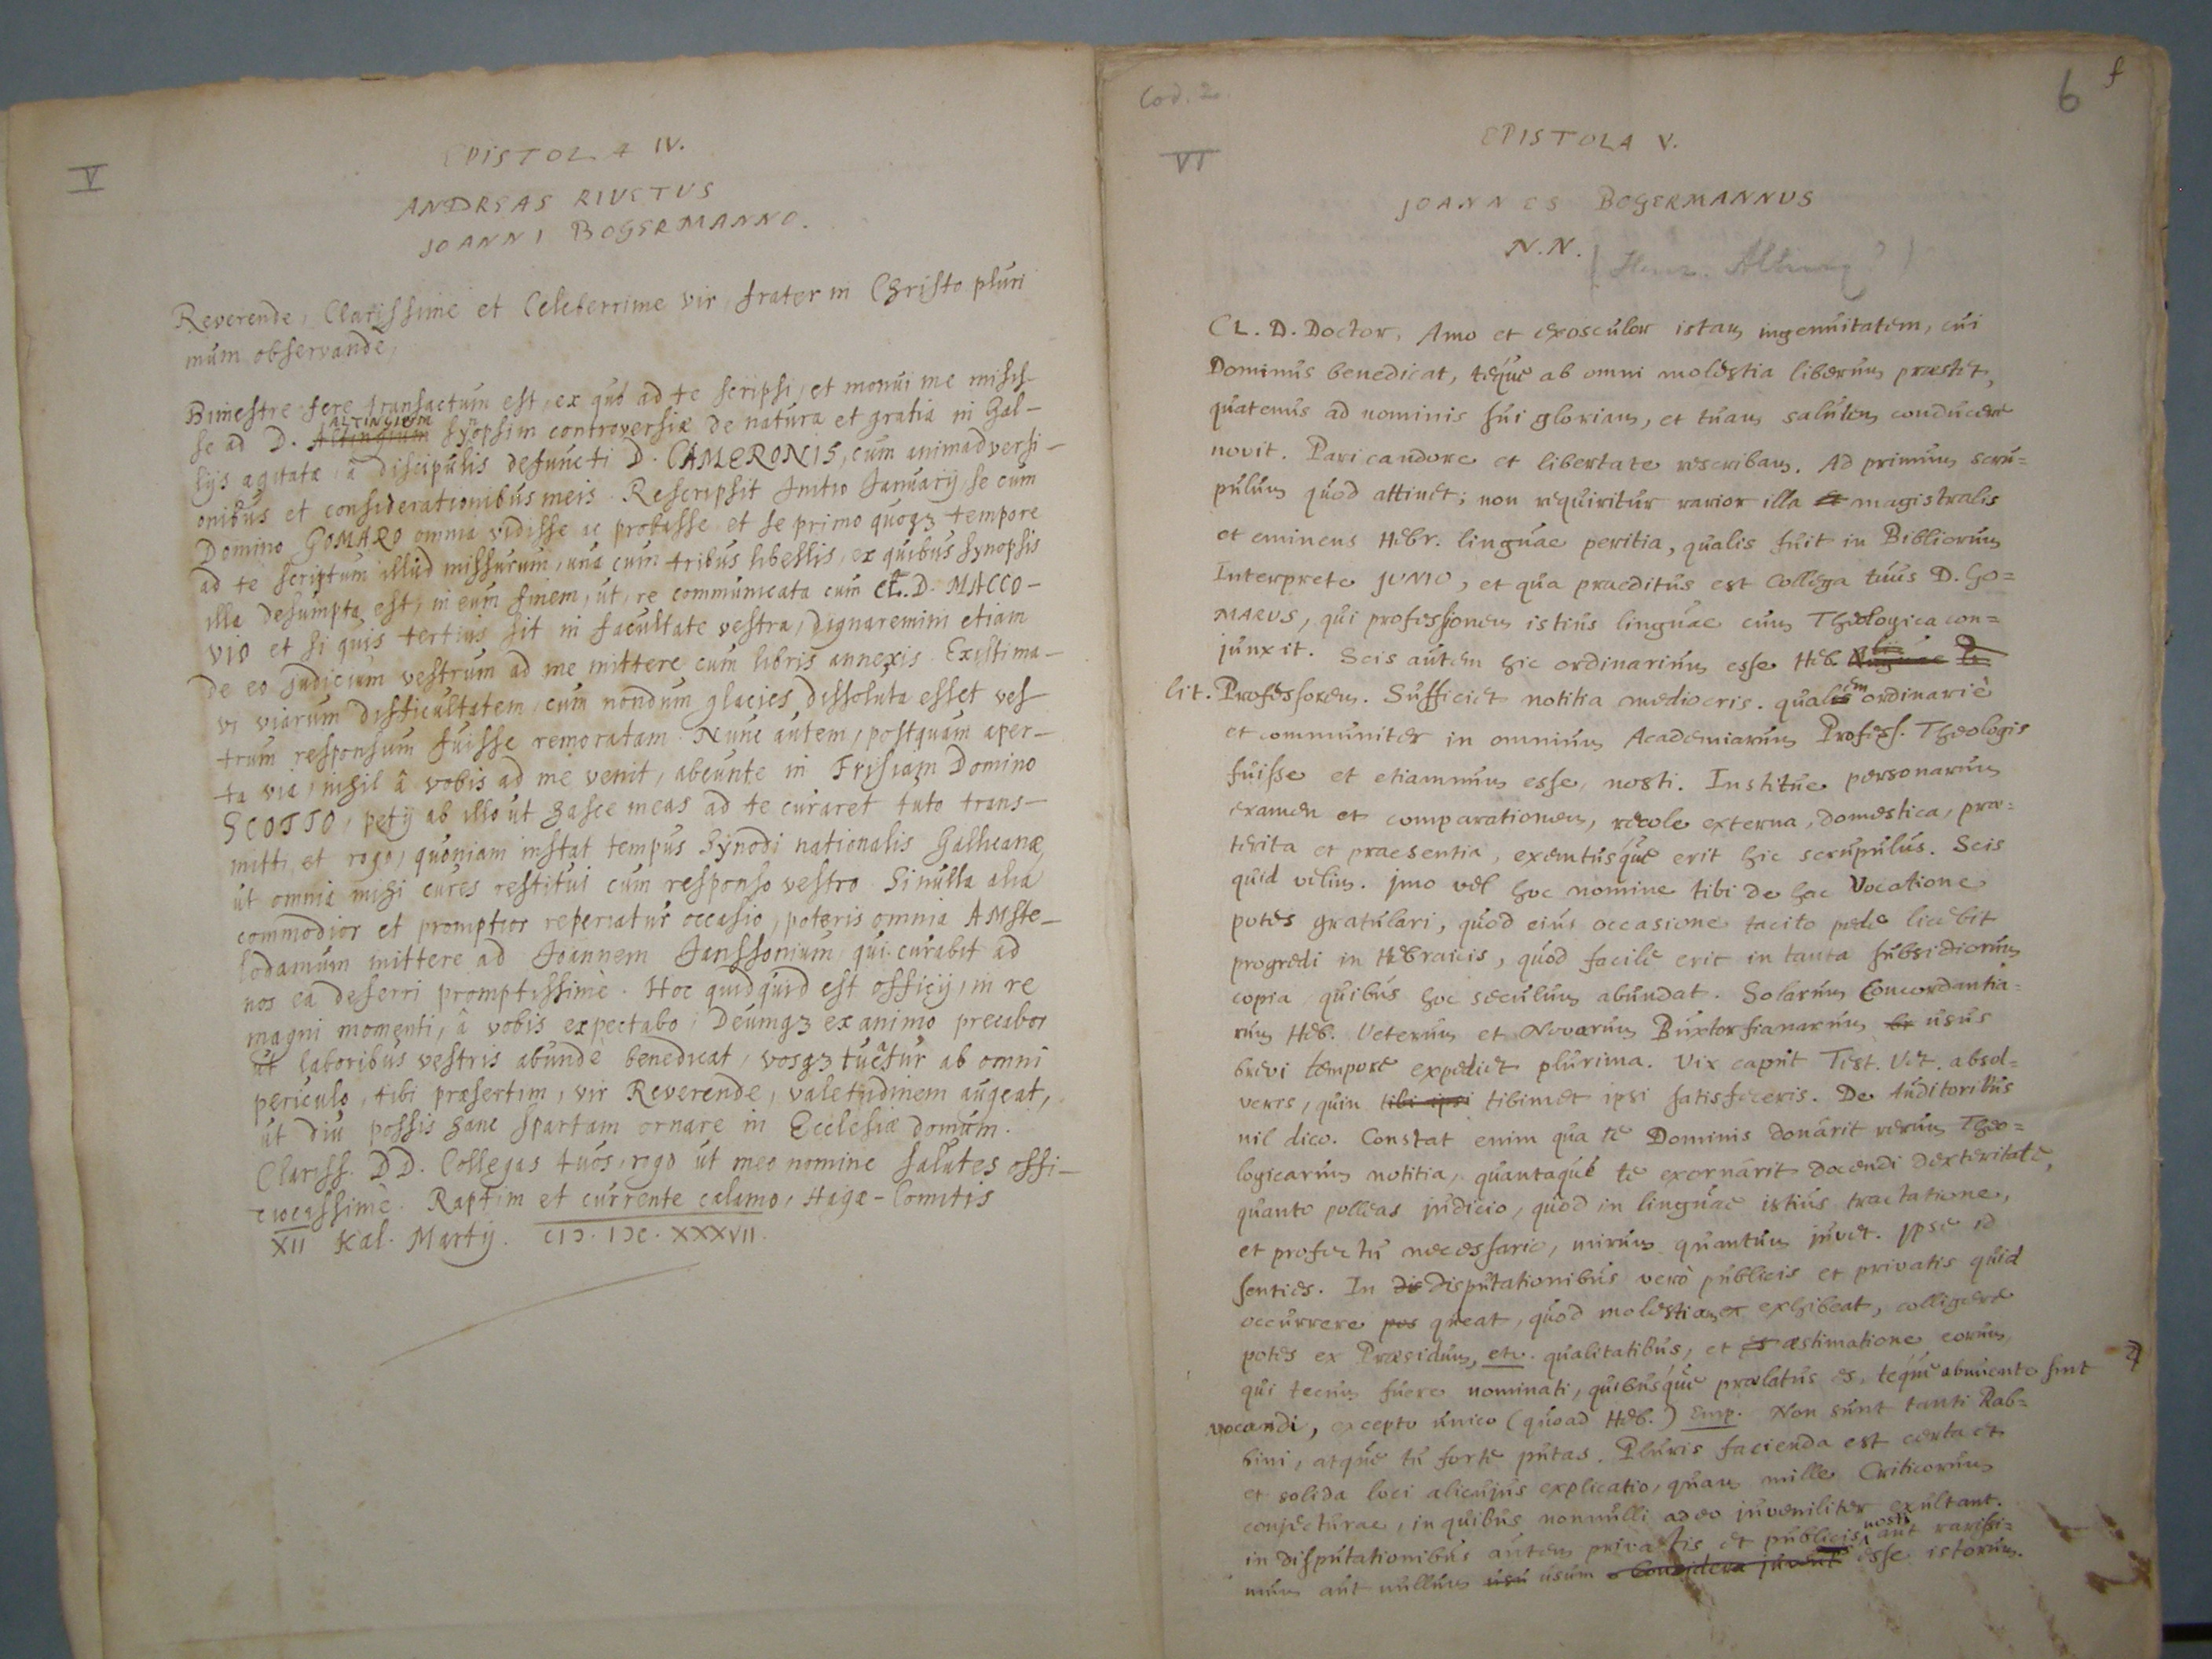 V
EPISTOLA IV.
ANDREAS RIVETUS
JOANNI BOGERMANNO.
Reverende, Clarissime et Celeberrime vir, frater in Christo pluri
mum observande,
Bimestre fere transactum est, ex quo ad te scripsi, et monui me misis-
se ad D. ALTINGIUM synopsim controversiæ de natura et gratia in Gal-
lijs agitatæ, â discipulis defuncti D. CAMERONIS, cum animadversi-
onibus et considerationibus meis. Rescripsit initio Januarij, se cum
Domino GOMARO omnia vidisse ac probasse et se primo quoqz tempore
ad te scriptum illud missurum, una cum tribus libellis, ex quibus synopsis
illa desumpta est, in eum finem, ut, re communicata cum Cl. D. MACCO-
VIO et si quis tertius sit in facultate vestra, dignaremini etiam
de eo judicium vestrum ad me mittere cum libris annexis. Existima-
vi viarum difficultatem, cum nondum glacies dissoluta esset ves-
trum responsum fuisse remoratam. Nunc autem, postquam aper-
ta via, nihil â vobis ad me venit, abeunte in Frisiam Domino
SCOTTO, petij ab illo ut hasce meas ad te curaret tuto trans-
mitti et rogo, quoniam instat tempus Synodi nationalis Gallicanæ,
ut omnia mihi cures restitui cum responso vestro. Si nulla alia
commodior et promptior reperiatur occasio, poteris omnia AMste-
lodamum mittere ad Joannem Janssonium, qui curabit ad
nos ea deferri promptissimè. Hoc quidquid est officij, in re
magni momenti, â vobis expectabo, Deumqz ex animo precabor
ut laboribus vestris abundè benedicat, vosqz tuetur ab omni
periculo, tibi præsertim, vir Reverende, valetudinem augeat,
ut diu possis hanc spartam ornare in Ecclesiæ domum.
Clariss. DD. Collegas tuos, rogo ut meo nomine salutes offi-
ciosissimè. Raptim et currente calamo, Hagæ-Comitis
XII Kal. Martij. CIƆ. IƆC. XXXVII.
Cod. 2.
6 f
VI
EPISTOLA V.
JOANNES BOGERMANNUS
N.N. (Henr. Alting?)
CL. D. Doctor, Amo et exosculor istam ingenuitatem, cui
Dominus benedicat, téque ab omni molestia liberum præstet,
quatenus ad nominis sui gloriam, et tuam salutem conducere
novit. Pari candore et libertate rescribam. Ad primum scru=
pulum quod attinet; non requiritur rarior illa et magistralis
et eminens Hebr. linguae peritia, qualis fuit in Bibliorum
Interprete JUNIO, et qua praeditus est Collega tuus D. Go=
MARUS, qui professionem istius linguae cum Theologica con=
junxit. Scis autem hic ordinarium esse Heb. linguae
lit. Professorem. Sufficiet notitia mediocris. qualem ordinariè
et communiter in omnium Academiarum Profess. Theologis
fuisse et etiamnum esse, nosti. Institue personarum
examen et comparationem, recole externa, domestica, præ=
terita et praesentia, exemtusque erit hic scrupulus. Scis
quid velim. Jmo vel hoc nomine tibi de hac Vocatione
potes gratulari, quod eius occasione tacito pede licebit
progredi in Hebraicis, quod facile erit in tanta subsidiorum
copia quibus hoc seculum abundat. Solarum Concordantia=
rum Heb. Veterum et Novarum Buxtorfianarum br usus
brevi tempore expediet plurima. Vix caput Test. Vet. absol=
veris, quin tibi ipsi tibimet ipsi satisfeceris. De Auditoribus
nil dico. Constat enim qua te Dominis donârit rerum Theo=
logicarum notitia, quantaqué te exornârit docendi dexteritate,
quanto polleas judicio, quod in linguae istius tractatione,
et profectu necessario, mirum quantum juvet. Jpse id
senties. In dis disputationibus verò publicis et privatis quid
occurrere pos queat, quod molestiam ex exhibeat, colligere
potes ex Præsidum, etc. qualitatibus, et æstimatione eorum,
qui tecum fuere nominati, quibusque prælatus es, téque abnuente sint
vocandi, excepto unico (quoad Heb.) Emp. Non sunt tanti Rab=
bini, atque tu forte putas. Pluris facienda est certa et
et solida loci alicujus explicatio, quam mille Criticorum
conjecturae, in quibus nonnulli adeo juveniliter exultant.
in disputationibus autem privatis et publicis, nosti aut rarissi=
mum aut nullum usu usum esse istorum.